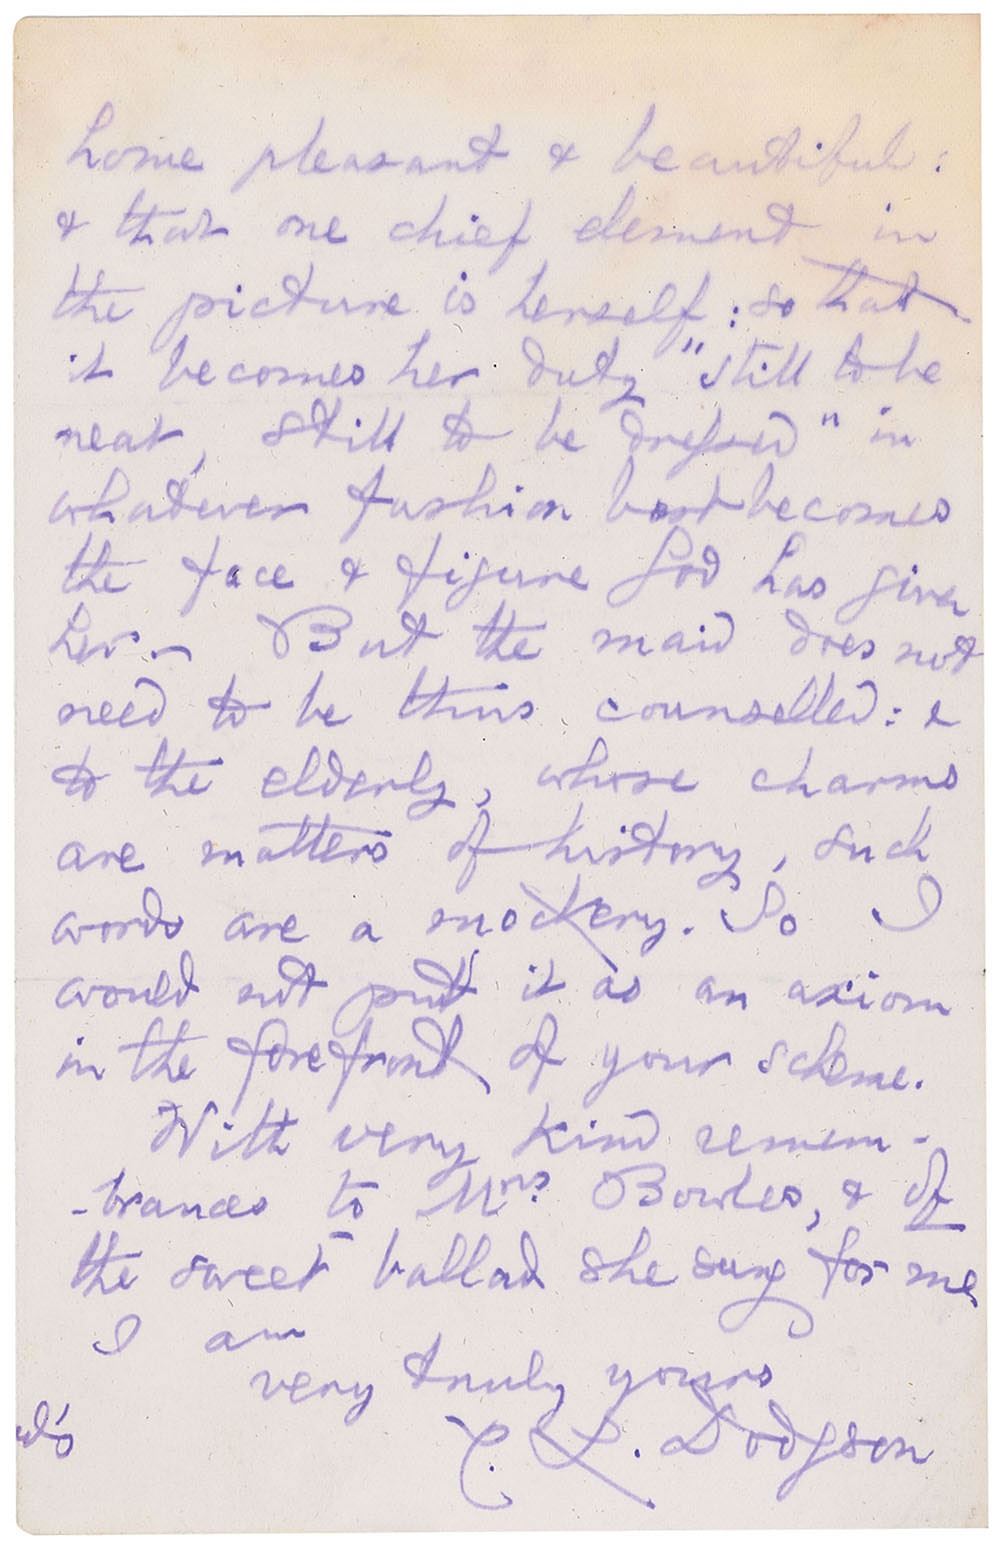 home pleasant & beautiful:
& that one chief element in
the picture is herself: so that
it becomes her duty "still to be
neat, still to be dressed" in
whatever fashion best becomes
the face & figure God has given
her.— But the maid does not
need to be thus counselled: &
to the elderly, whose charms
are matters of history, such
words are a mockery. So I
would not put it as an axiom
in the forefront of your scheme.
With very kind remem-
-brances to Mrs. Bowles, & of
the sweet ballad she sung for me,
I am
very truly yours
C. L. Dodgson